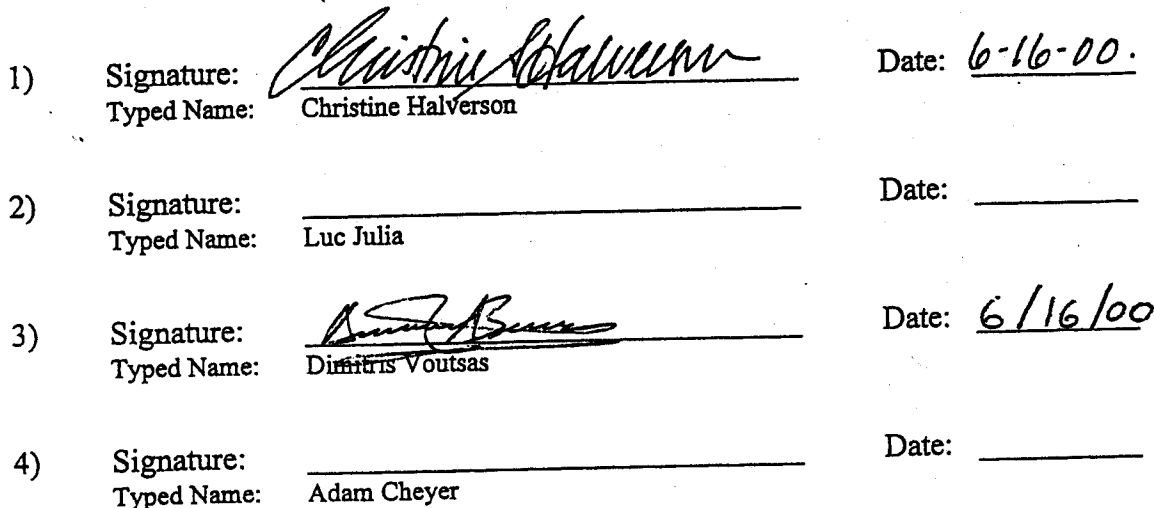 1) Signature: Christine Halverson Date: 6-16-00.
Typed Name: Christine Halverson
2) Signature: Date:
Typed Name: Luc Julia
3) Signature: Date: 6/16/00
Typed Name: Dimitris Voutsas
4) Signature: Date:
Typed Name: Adam Cheyer